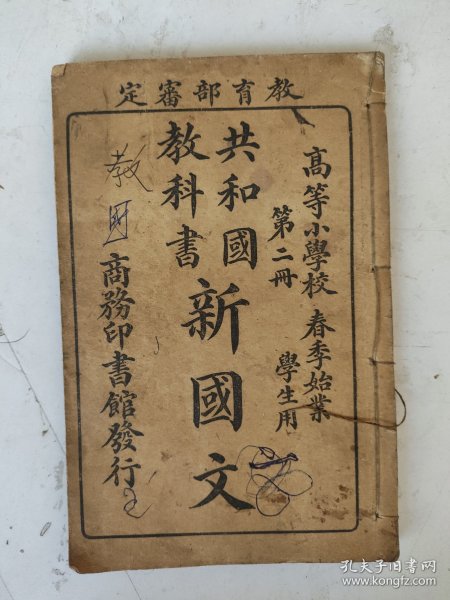 教育部審定
高等小學校 春季始業
學生用
第二冊
共和國
教科書
新國文
商務印書館發行
教國
孔夫子旧书网
www.kongfz.com